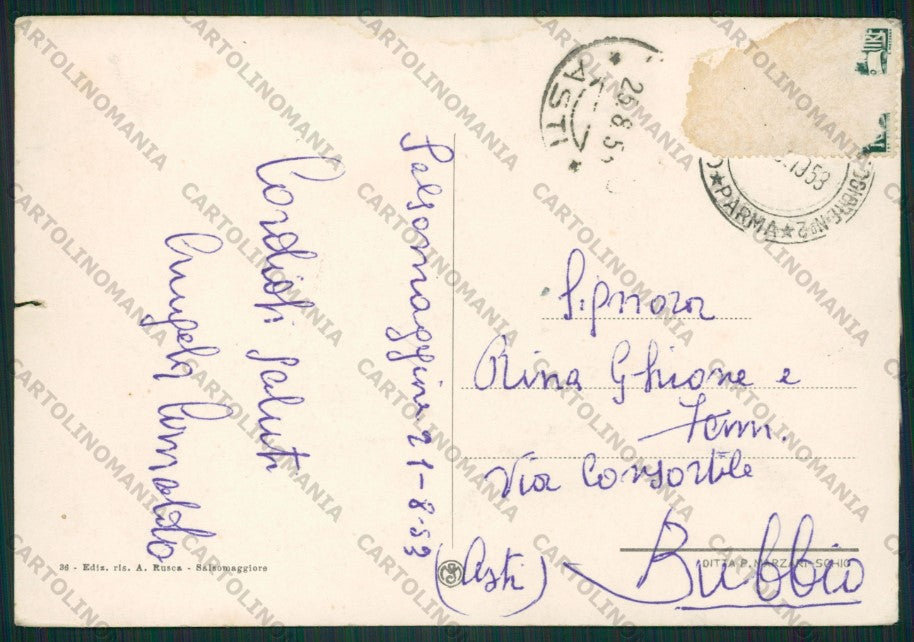 Salsomaggiore 21-8-53
Cordiali saluti
Angela
Signora
Rina Ghione e
Fam.
Via Consortile
Bubbio
(Asti)
ASTI
26.8.5
1953
PARMA
GGIORE N° 2
36 - Ediz. ris. A. Rusca - Salsomaggiore
DITTA P. MARZARI-SCHIO
CARTOLINOMANIA